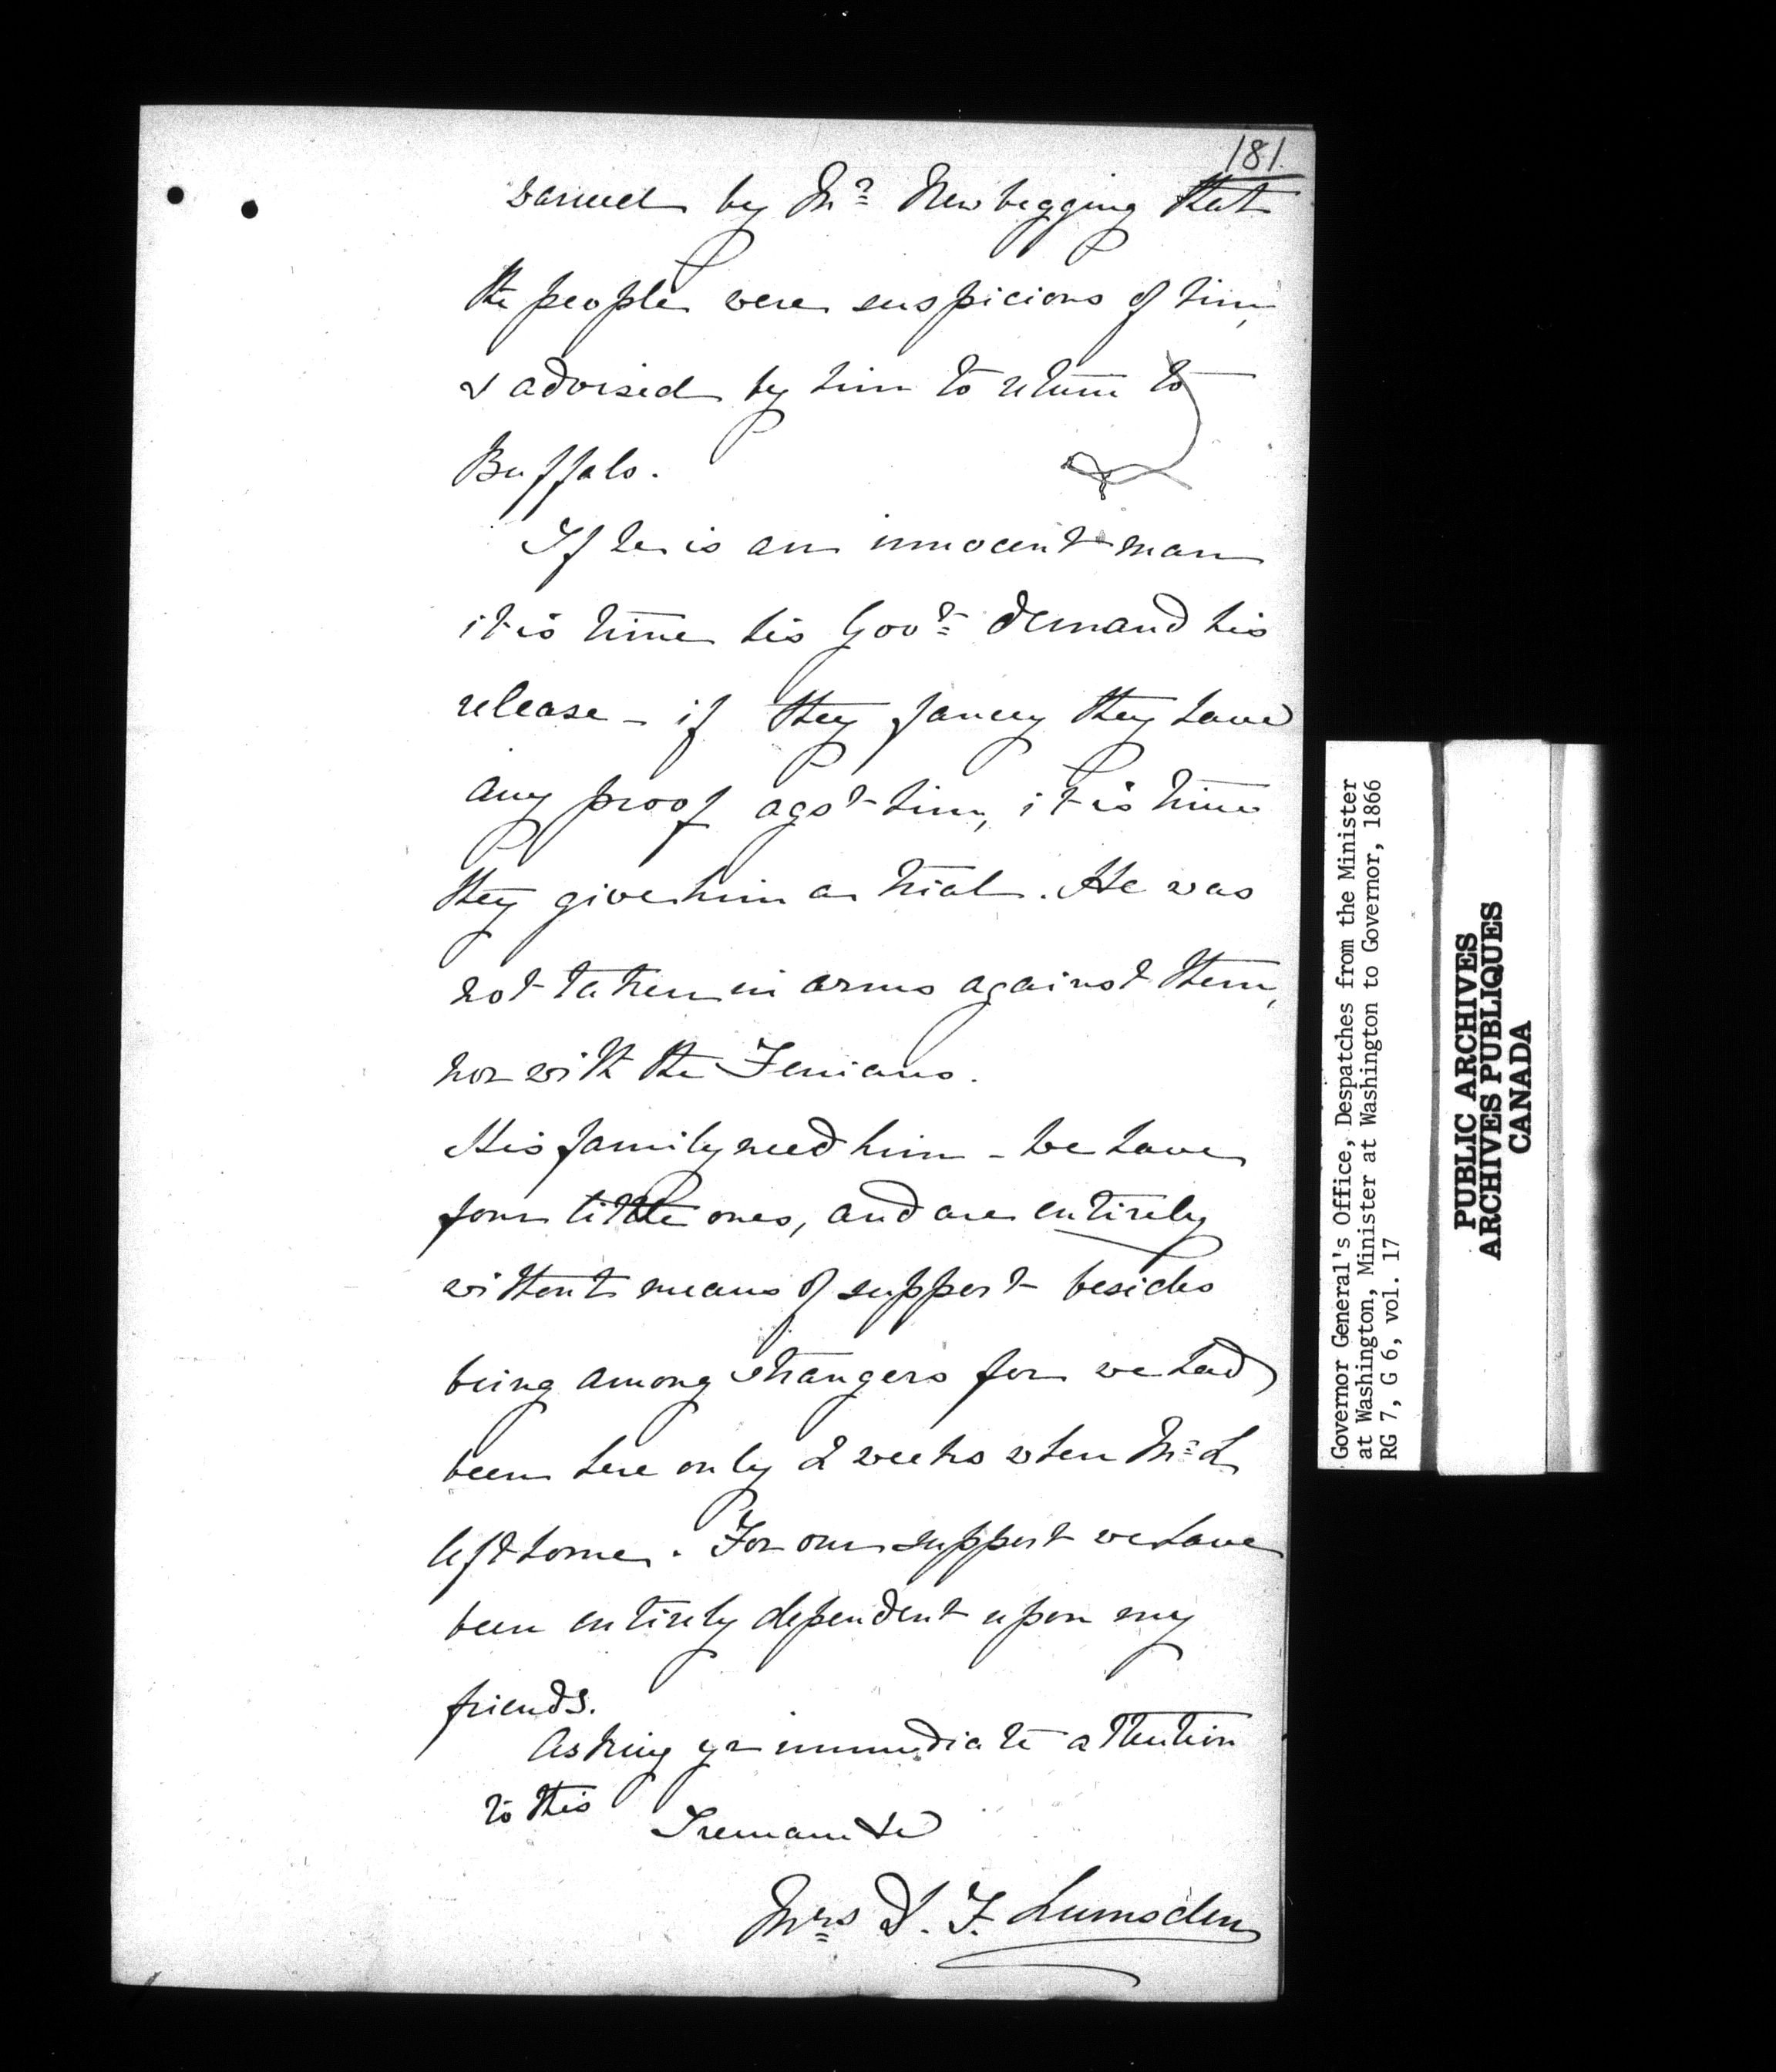 181.
warned by Mr Newbigging that
the people were suspicious of him,
& advised by him to return to
Buffalo.
If he is an innocent man
it is time his Govt demand his
release - if they fancy they have
any proof agst him, it is time
they give him a trial. He was
not taken in arms against them,
nor with the Fenians.
His family need him - we have
four little ones, and are entirely
without means of support besides
being among strangers for we had
been here only 2 weeks when Mr L
left home. For our support we have
been entirely dependent upon my
friends.
Asking yr immediate attention
to this
I remain &c
Mrs D. F. Lumsden
Governor General's Office, Despatches from the Minister
at Washington, Minister at Washington to Governor, 1866
RG 7, G 6, vol. 17
PUBLIC ARCHIVES
ARCHIVES PUBLIQUES
CANADA